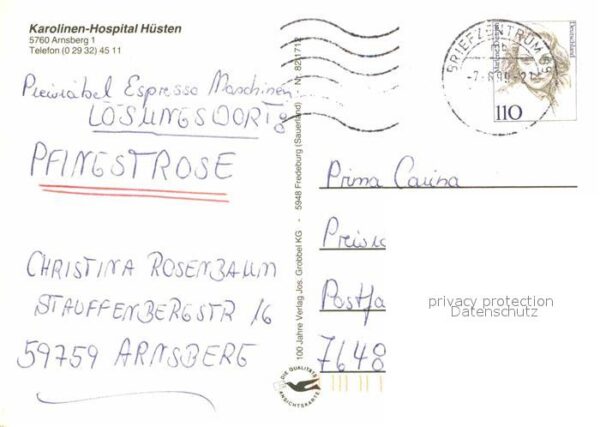 Karolinen-Hospital Hüsten
5760 Arnsberg 1
Telefon (0 29 32) 45 11
Preisrätsel Espresso Maschinen
LÖSUNGSDORT:
PFINGSTROSE
CHRISTINA ROSENBAUM
STAUFFENBERGSTR 16
59759 ARNSBERG
100 Jahre Verlag Jos. Grobbel KG - 5948 Fredeburg (Sauerland) - Nr. 82/1712
DIE QUALITÄTS
ANSICHTSKARTE
BRIEFZENTRUM 59
Deutschland
110
Prima Carina
Preisr
Postfa
7648
privacy protection
Datenschutz